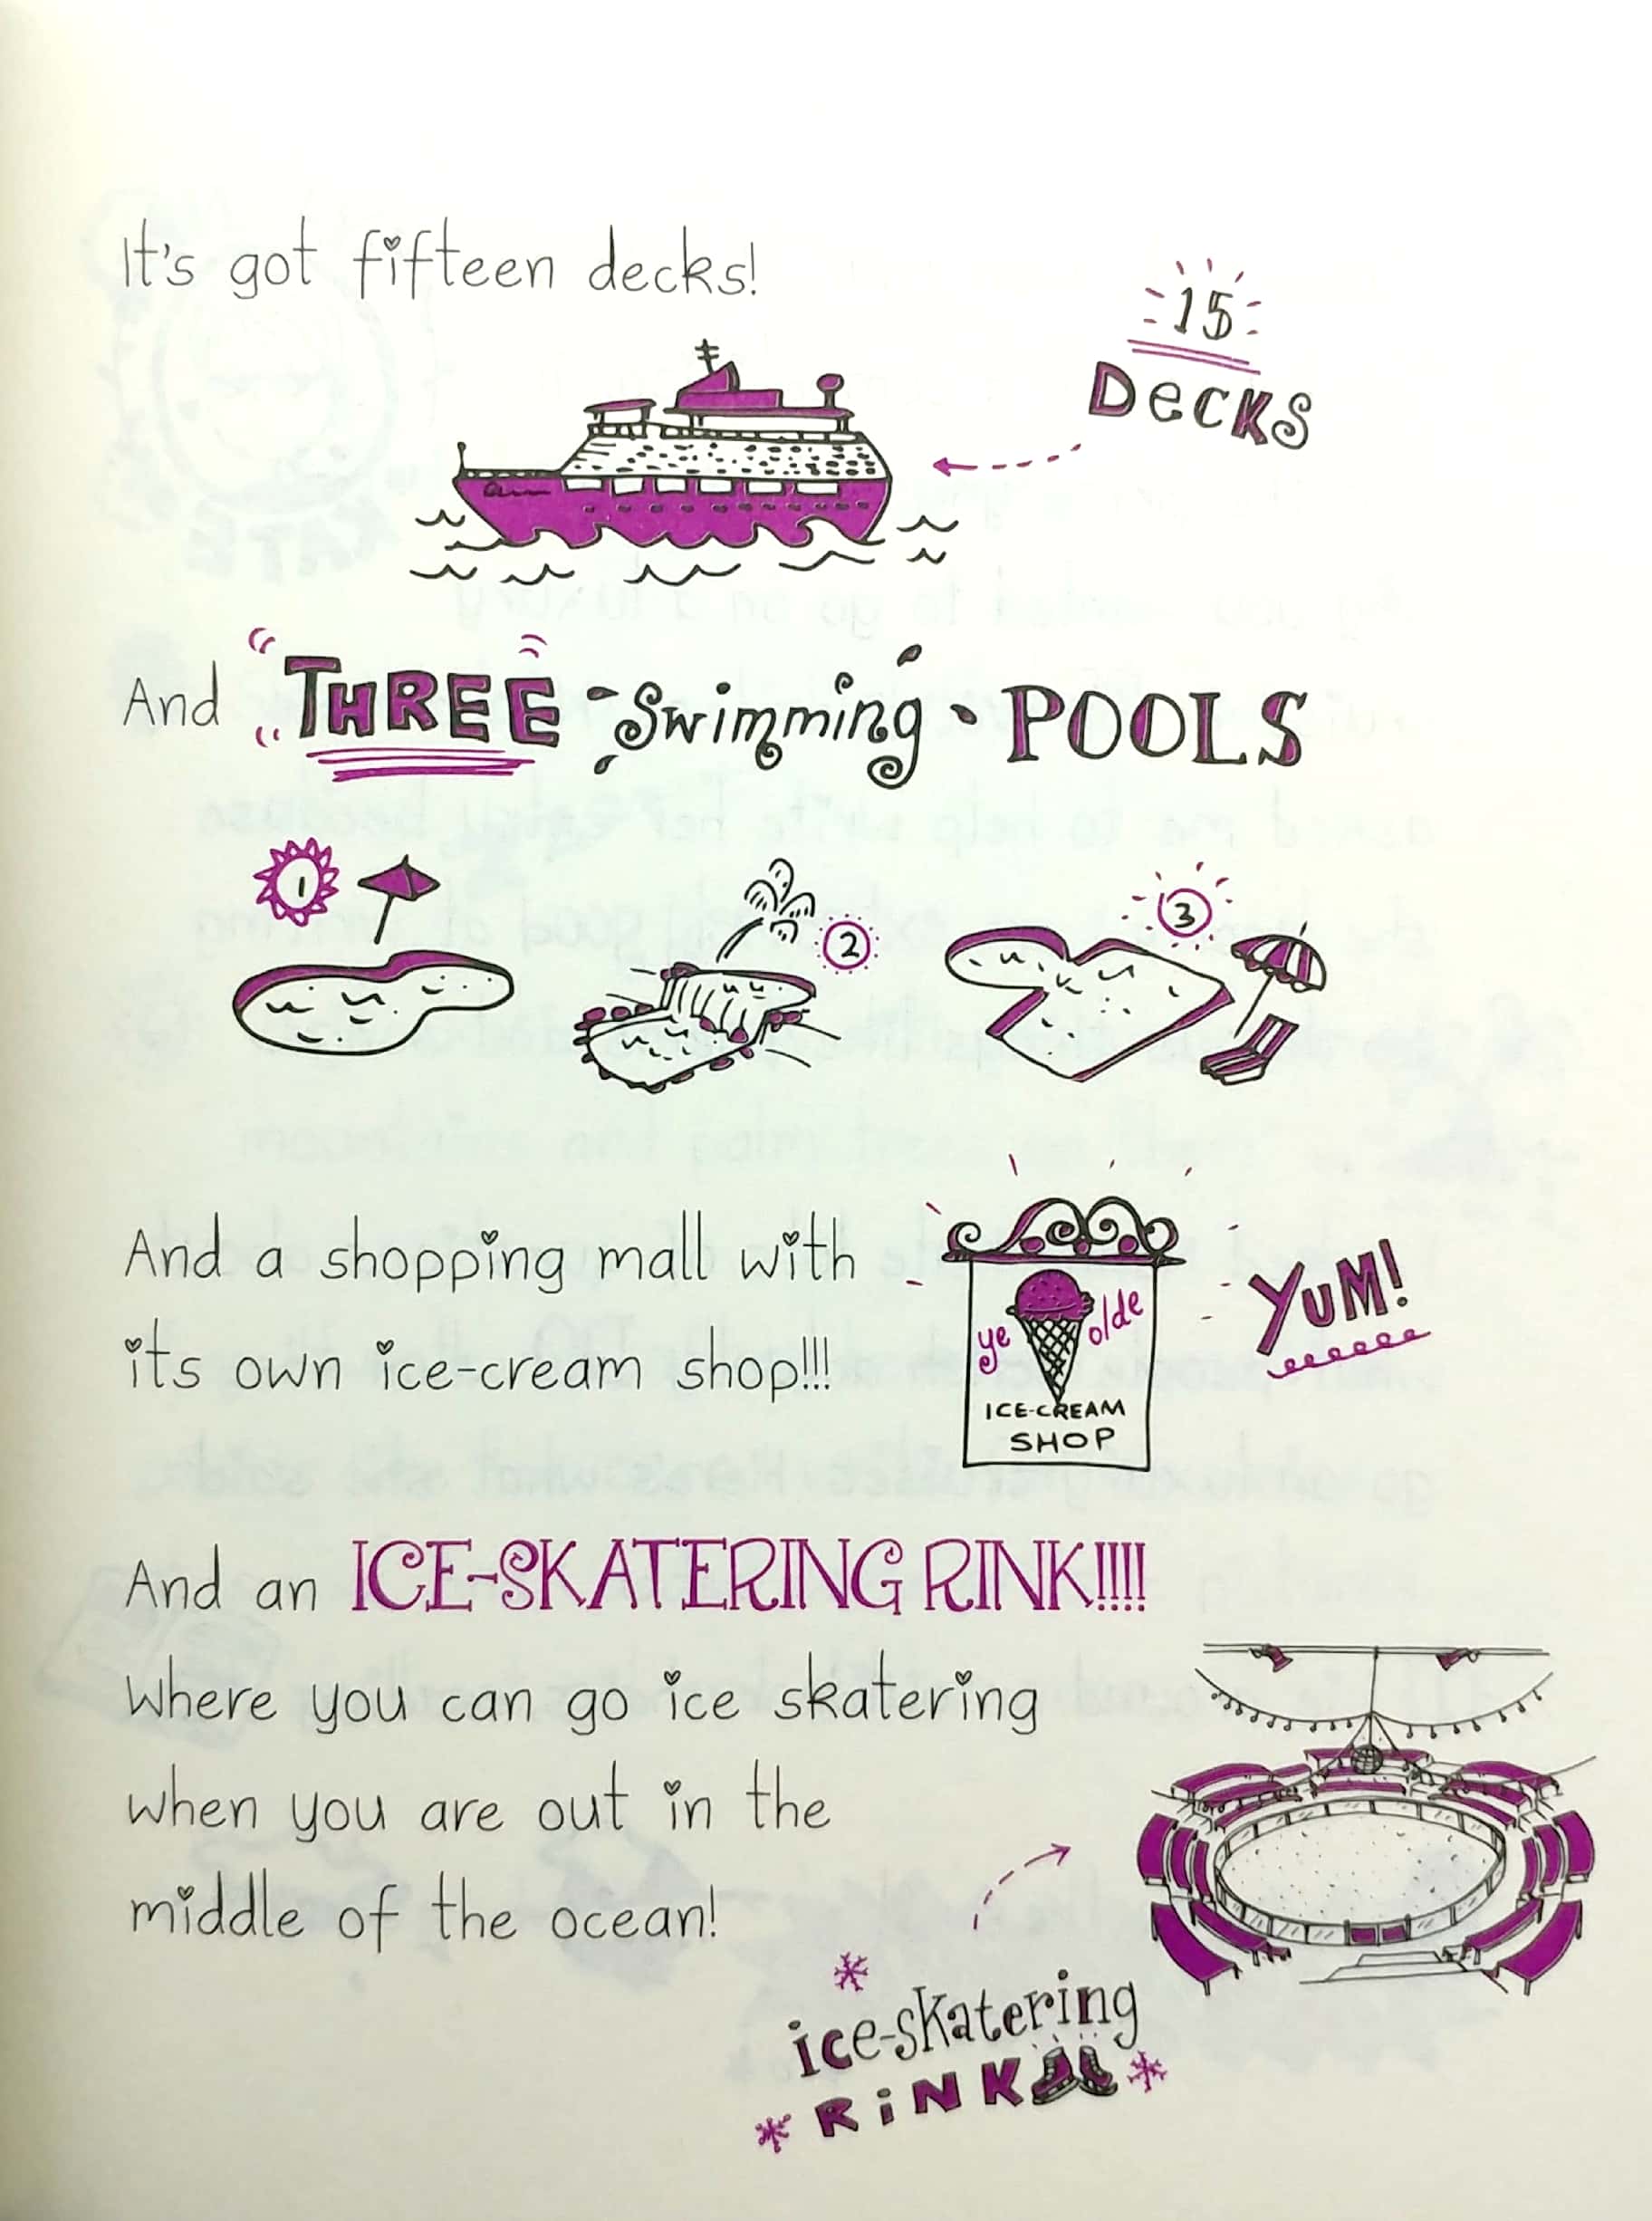 It's got fifteen decks!
15
DecKS
And THREE Swimming POOLS
1
2
3
And a shopping mall with
its own ice-cream shop!!!
ye olde
ICE-CREAM
SHOP
YuM!
And an ICE-SKATERING RINK!!!!
Where you can go ice skatering
when you are out in the
middle of the ocean!
ice-skatering
RiNK